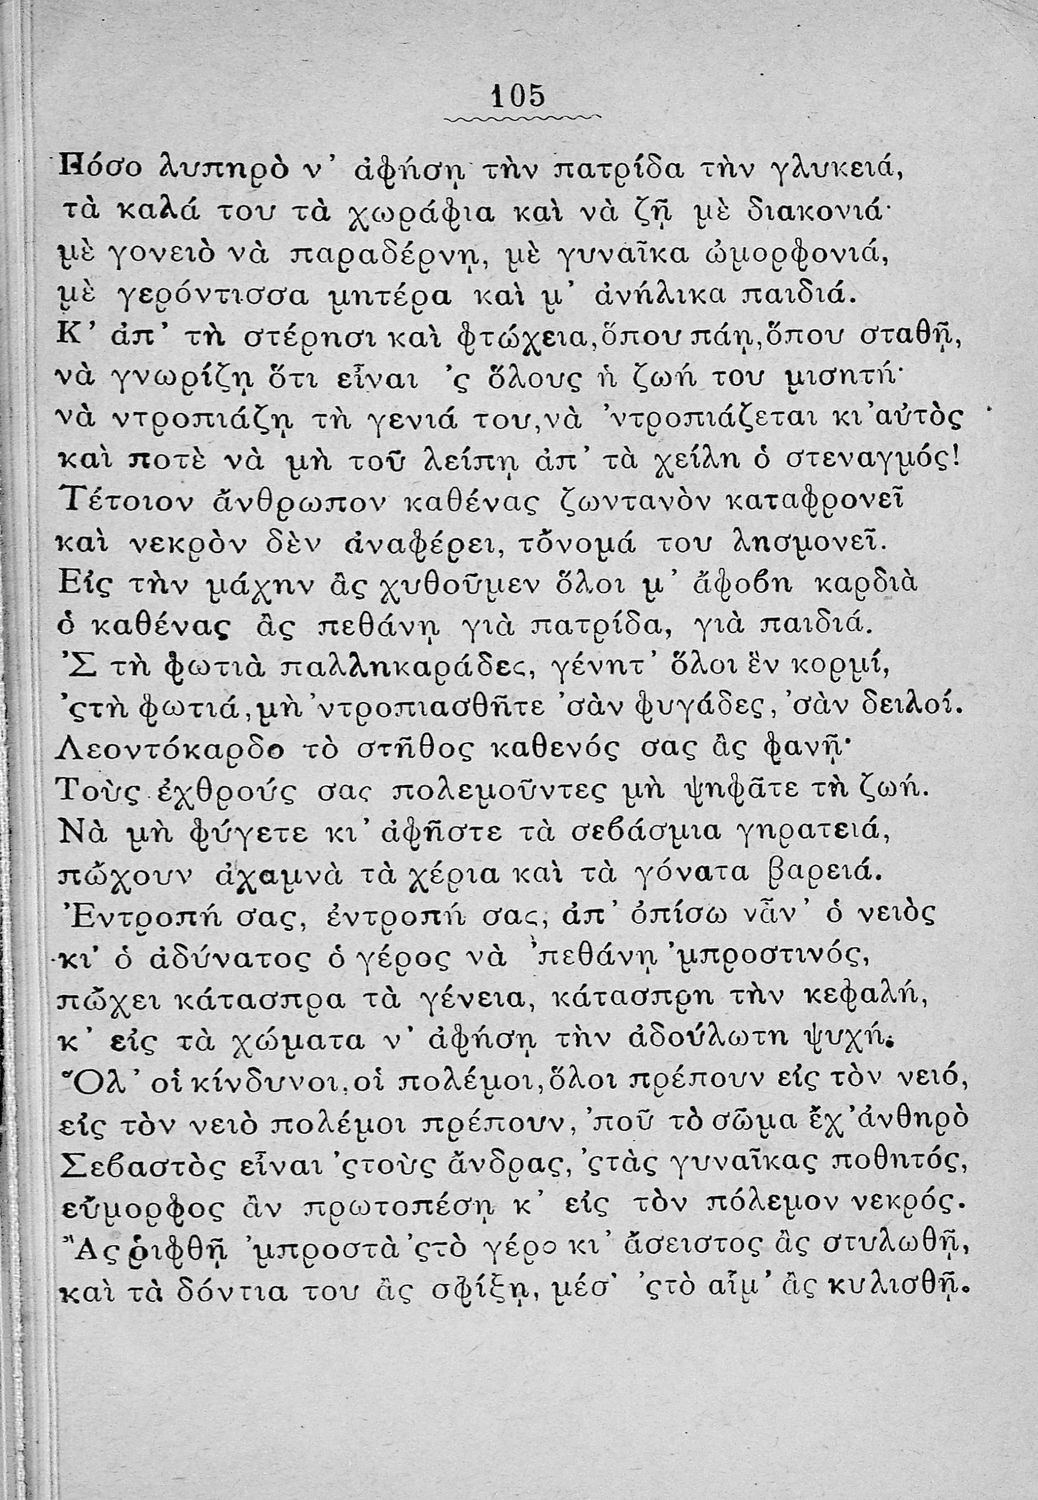 105
Πόσο λυπηρὸ ν' ἀφήσῃ τὴν πατρίδα τὴν γλυκειά,
τὰ καλά του τὰ χωράφια καὶ νὰ ζῇ μὲ διακονιά·
μὲ γονειὸ νὰ παραδέρνῃ, μὲ γυναῖκα ὠμορφονιά,
μὲ γερόντισσα μητέρα καὶ μ' ἀνήλικα παιδιά.
Κ' ἀπ' τὴ στέρησι καὶ φτώχεια, ὅπου πάῃ, ὅπου σταθῇ,
νὰ γνωρίζῃ ὅτι εἶναι 'ς ὅλους ἡ ζωή του μισητή·
νὰ ντροπιάζῃ τὴ γενιά του, νὰ 'ντροπιάζεται κι' αὐτὸς
καὶ ποτὲ νὰ μὴ τοῦ λείπῃ ἀπ' τὰ χείλη ὁ στεναγμός!
Τέτοιον ἄνθρωπον καθένας ζωντανὸν καταφρονεῖ
καὶ νεκρὸν δὲν ἀναφέρει, τὄνομά του λησμονεῖ.
Εἰς τὴν μάχην ἂς χυθοῦμεν ὅλοι μ' ἄφοβη καρδιὰ
ὁ καθένας ἂς πεθάνῃ γιὰ πατρίδα, γιὰ παιδιά.
'Σ τὴ φωτιὰ παλληκαράδες, γένητ' ὅλοι ἓν κορμί,
'ςτὴ φωτιά, μὴ 'ντροπιασθῆτε 'σὰν φυγάδες, 'σὰν δειλοί.
Λεοντόκαρδο τὸ στῆθος καθενός σας ἂς φανῇ·
Τοὺς ἐχθρούς σας πολεμοῦντες μὴ ψηφᾶτε τὴ ζωή.
Νὰ μὴ φύγετε κι' ἀφῆστε τὰ σεβάσμια γηρατειά,
πὤχουν ἀχαμνὰ τὰ χέρια καὶ τὰ γόνατα βαρειά.
Ἐντροπή σας, ἐντροπή σας, ἀπ' ὀπίσω νἆν' ὁ νειὸς
κι' ὁ ἀδύνατος ὁ γέρος νὰ 'πεθάνῃ 'μπροστινός,
πὤχει κάτασπρα τὰ γένεια, κάτασπρη τὴν κεφαλή,
κ' εἰς τὰ χώματα ν' ἀφήσῃ τὴν ἀδούλωτη ψυχή.
Ὅλ' οἱ κίνδυνοι, οἱ πολέμοι, ὅλοι πρέπουν εἰς τὸν νειό,
εἰς τὸν νειὸ πολέμοι πρέπουν, 'ποῦ τὸ σῶμα ἔχ' ἀνθηρὸ
Σεβαστὸς εἶναι 'ςτοὺς ἄνδρας, 'ςτὰς γυναῖκας ποθητός,
εὔμορφος ἂν πρωτοπέσῃ κ' εἰς τὸν πόλεμον νεκρός.
Ἂς ῥιφθῇ 'μπροστὰ 'ςτὸ γέρο κι' ἄσειστος ἂς στυλωθῇ,
καὶ τὰ δόντια του ἂς σφίξῃ, μέσ' 'ςτὸ αἷμ' ἂς κυλισθῇ.